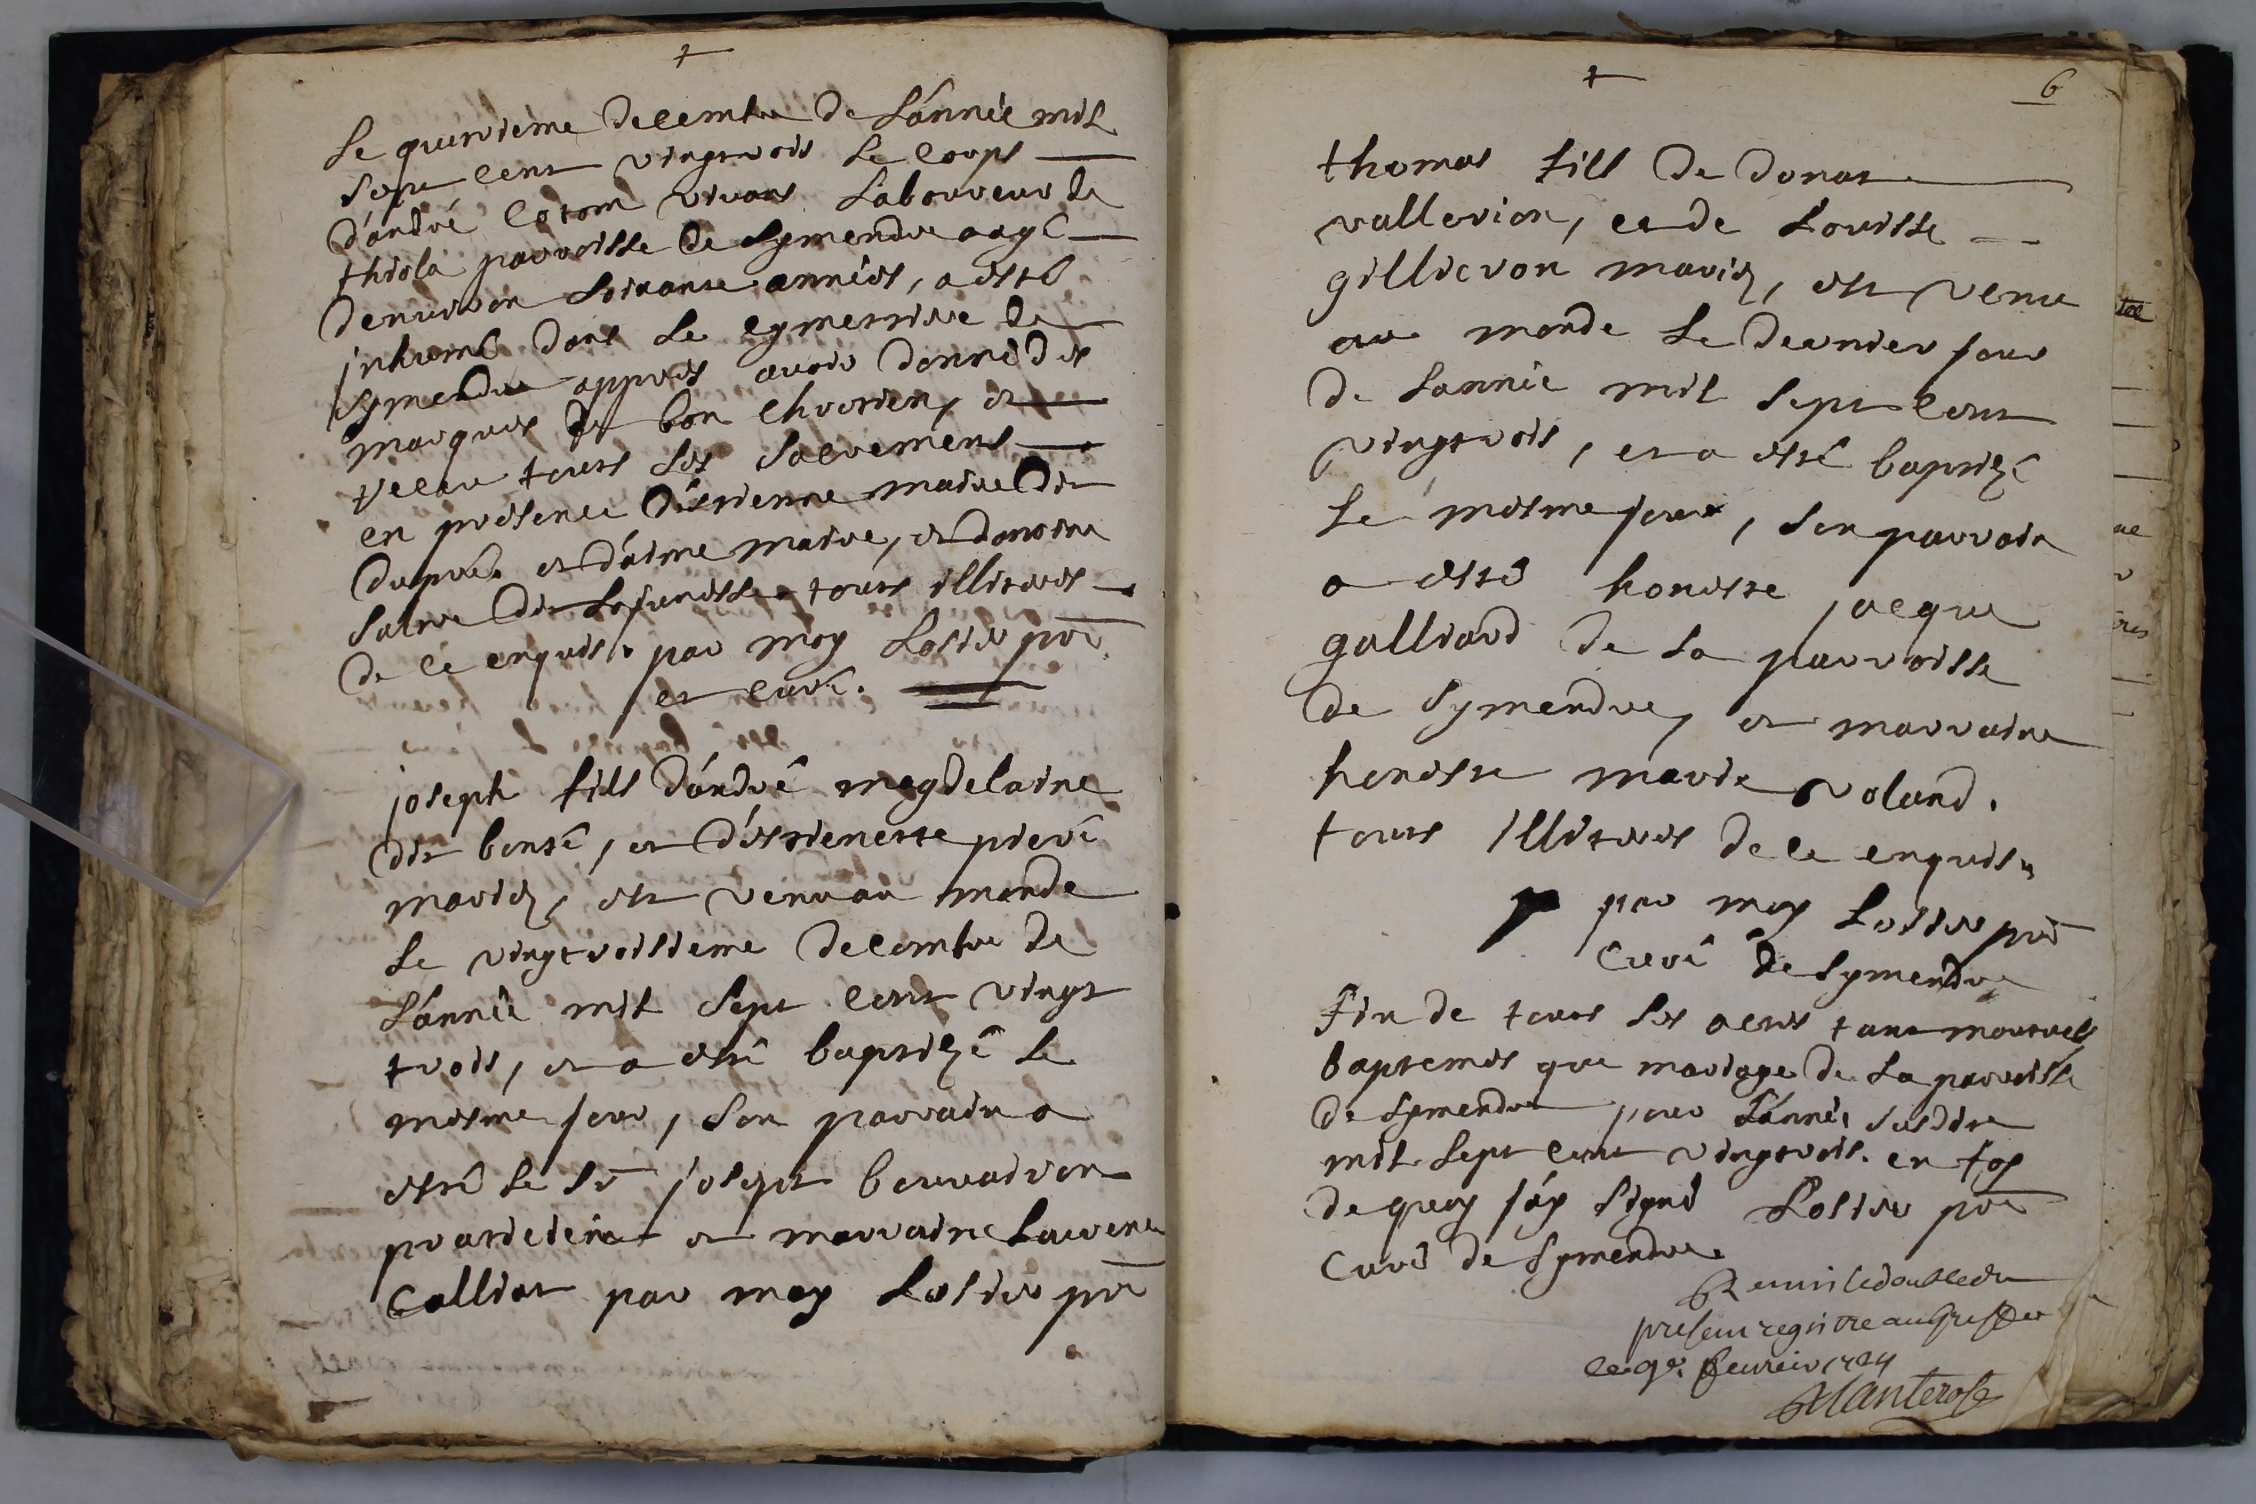 Le quinzieme decembre de L'année mil
sept cent vingtrois Le corps
d'andré cotom vivant Laboureur de
thiola parroisse de symendre aagé
denuiron soixante années, a esté
inhumé dans Le cymettiere de
symendre appres auoir donné des
marques de bon chretien, et
receu touts ses sacrements
en présence d'estienne maire dit
dupré et d'aimé maire, et danoine
dit touts illiterés
de ce enquis. par moy Losier ptre
et curé.
joseph fills d'andré magdelaine
dit bonsé, et d'estienette pieré
mariez, est venu au monde
Le vingtroisieme decembre de
L'année mil sept cent vingt
trois, et a esté baptizé Le
mesme jour, son parrain a
esté Le sr joseph
praticien et marraine Laurence
Calliat par moy Losier ptre
6
thomas fills de donat
vallerion, et de Louisse
gillieron mariez, est venu
au monde Le dernier jour
de Lannée mil sept cent
vingtrois, et a esté baptizé
Le mesme jour, son parrain
a esté honeste jacque
galliard de La parroisse
de symendre, et marraine
honeste marie voland.
touts illiterés de ce enquis
par moy Losier ptre
Curé de symendre
Fin de touts Les actes tant mortuels
baptemes que mariage de La parroisse
de symendre pour L'année susdite
mil sept cent vingtrois. en foy
de quoy j'ay signé Losier ptre
Curé de symendre.
Remis le double du
present registre au Greffe
le 9e. feurier 1724